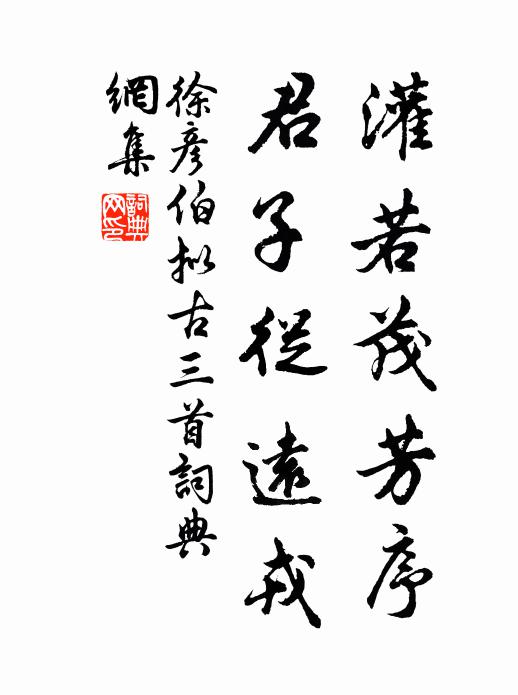 灌若茂芳序
君子從遠戎
徐彥伯擬古三首詞典
網集
詞典網印